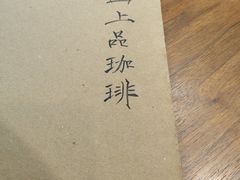 上品珈琲